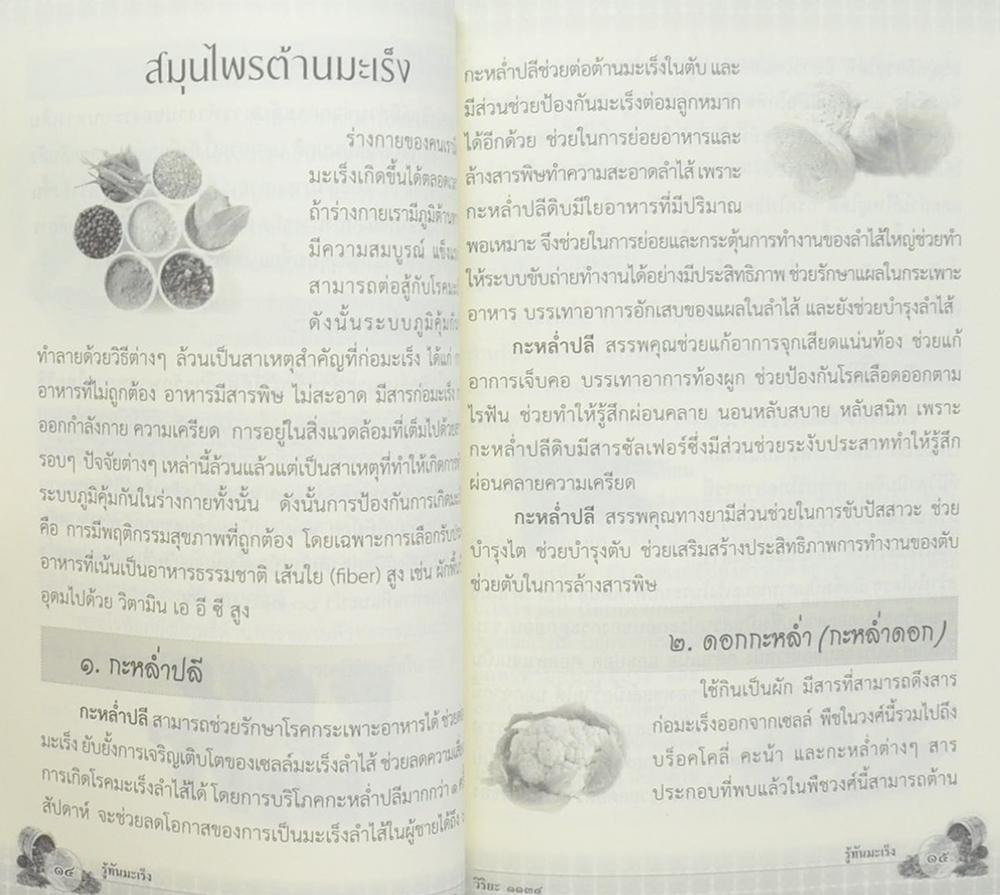 สมุนไพรต้านมะเร็ง
ร่างกายของคนเรามี
มะเร็งเกิดขึ้นได้ตลอดเวลา
ถ้าร่างกายเรามีภูมิต้าน
มีความสมบูรณ์ แข็งแรง
สามารถต่อสู้กับโรคมะ
ดังนั้นระบบภูมิคุ้มกัน
ทำลายด้วยวิธีต่างๆ ล้วนเป็นสาเหตุสำคัญที่ก่อมะเร็ง ได้แก่
อาหารที่ไม่ถูกต้อง อาหารมีสารพิษ ไม่สะอาด มีสารก่อมะเร็ง
ออกกำลังกาย ความเครียด การอยู่ในสิ่งแวดล้อมที่เต็มไปด้วย
รอบๆ ปัจจัยต่างๆ เหล่านี้ล้วนแล้วแต่เป็นสาเหตุที่ทำให้เกิดการ
ระบบภูมิคุ้มกันในร่างกายทั้งนั้น ดังนั้นการป้องกันการเกิดมะ
คือ การมีพฤติกรรมสุขภาพที่ถูกต้อง โดยเฉพาะการเลือกรับประ
อาหารที่เน้นเป็นอาหารธรรมชาติ เส้นใย (fiber) สูง เช่น ผักพื้น
อุดมไปด้วย วิตามิน เอ อี ซี สูง
๑. กะหล่ำปลี
กะหล่ำปลี สามารถช่วยรักษาโรคกระเพาะอาหารได้ ช่วย
มะเร็ง ยับยั้งการเจริญเติบโตของเซลล์มะเร็งลำไส้ ช่วยลดความเสี่ยง
การเกิดโรคมะเร็งลำไส้ได้ โดยการบริโภคกะหล่ำปลีมากกว่า ๑
สัปดาห์ จะช่วยลดโอกาสของการเป็นมะเร็งลำไส้ในผู้ชายได้ถึง
๑๔ รู้ทันมะเร็ง
กะหล่ำปลีช่วยต่อต้านมะเร็งในตับ และ
มีส่วนช่วยป้องกันมะเร็งต่อมลูกหมาก
ได้อีกด้วย ช่วยในการย่อยอาหารและ
ล้างสารพิษทำความสะอาดลำไส้ เพราะ
กะหล่ำปลีดิบมีใยอาหารที่มีปริมาณ
พอเหมาะ จึงช่วยในการย่อยและกระตุ้นการทำงานของลำไส้ใหญ่ช่วยทำ
ให้ระบบขับถ่ายทำงานได้อย่างมีประสิทธิภาพ ช่วยรักษาแผลในกระเพาะ
อาหาร บรรเทาอาการอักเสบของแผลในลำไส้ และยังช่วยบำรุงลำไส้
กะหล่ำปลี สรรพคุณช่วยแก้อาการจุกเสียดแน่นท้อง ช่วยแก้
อาการเจ็บคอ บรรเทาอาการท้องผูก ช่วยป้องกันโรคเลือดออกตาม
ไรฟัน ช่วยทำให้รู้สึกผ่อนคลาย นอนหลับสบาย หลับสนิท เพราะ
กะหล่ำปลีดิบมีสารซัลเฟอร์ซึ่งมีส่วนช่วยระงับประสาททำให้รู้สึก
ผ่อนคลายความเครียด
กะหล่ำปลี สรรพคุณทางยามีส่วนช่วยในการขับปัสสาวะ ช่วย
บำรุงไต ช่วยบำรุงตับ ช่วยเสริมสร้างประสิทธิภาพการทำงานของตับ
ช่วยตับในการล้างสารพิษ
๒. ดอกกะหล่ำ (กะหล่ำดอก)
ใช้กินเป็นผัก มีสารที่สามารถดึงสาร
ก่อมะเร็งออกจากเซลล์ พืชในวงศ์นี้รวมไปถึง
บร็อคโคลี่ คะน้า และกะหล่ำต่างๆ สาร
ประกอบที่พบแล้วในพืชวงศ์นี้สามารถต้าน
วิริยะ ๑๑๓๔
รู้ทันมะเร็ง ๑๕